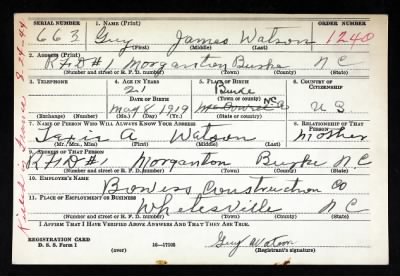 SERIAL NUMBER 1. NAME (Print) ORDER NUMBER
663 Guy James Watson 1240
(First) (Middle) (Last)
2. ADDRESS (Print)
R.F.D #1 Morganton Burke N C
(Number and street or R. F. D. number) (Town) (County) (State)
3. TELEPHONE 4. AGE IN YEARS 5. PLACE OF BIRTH 6. COUNTRY OF CITIZENSHIP
21 Burke
DATE OF BIRTH (Town or county)
May 8 1919 N.C. U S
(Exchange) (Number) (Mo.) (Day) (Yr.) (State or country)
7. NAME OF PERSON WHO WILL ALWAYS KNOW YOUR ADDRESS 8. RELATIONSHIP OF THAT PERSON
A Watson Mother
(Mr., Mrs., Miss) (First) (Middle) (Last)
9. ADDRESS OF THAT PERSON
R.F.D #1 Morganton Burke N.C.
(Number and street or R. F. D. number) (Town) (County) (State)
10. EMPLOYER'S NAME
Bowess Construction Co
11. PLACE OF EMPLOYMENT OR BUSINESS
Whitesville N C
(Number and street or R. F. D. number) (Town) (County) (State)
I AFFIRM THAT I HAVE VERIFIED ABOVE ANSWERS AND THAT THEY ARE TRUE.
REGISTRATION CARD
D. S. S. Form 1 (over) 16—17105 Guy Watson
(Registrant's signature)
Killed in France 8-29-44